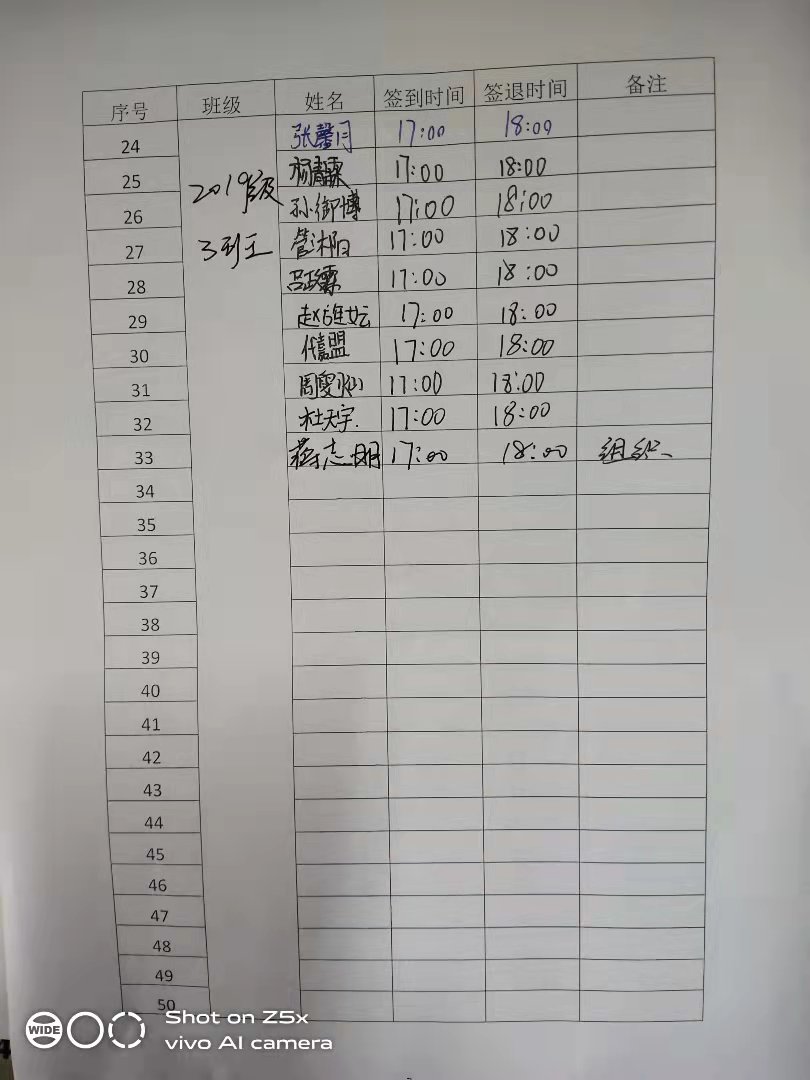 序号 班级 姓名 签到时间 签退时间 备注
24 张馨月 17:00 18:00
25 17:00 18:00
2019级
26 孙御博 17:00 18:00
27 管湘 17:00 18:00
3班
28 17:00 18:00
29 赵 17:00 18:00
30 盟 17:00 18:00
31 周雯 17:00 18:00
32 杜天宇. 17:00 18:00
33 蒋志明 17:00 18:00 组织
34
35
36
37
38
39
40
41
42
43
44
45
46
47
48
49
50
WIDE
Shot on Z5x
vivo AI camera